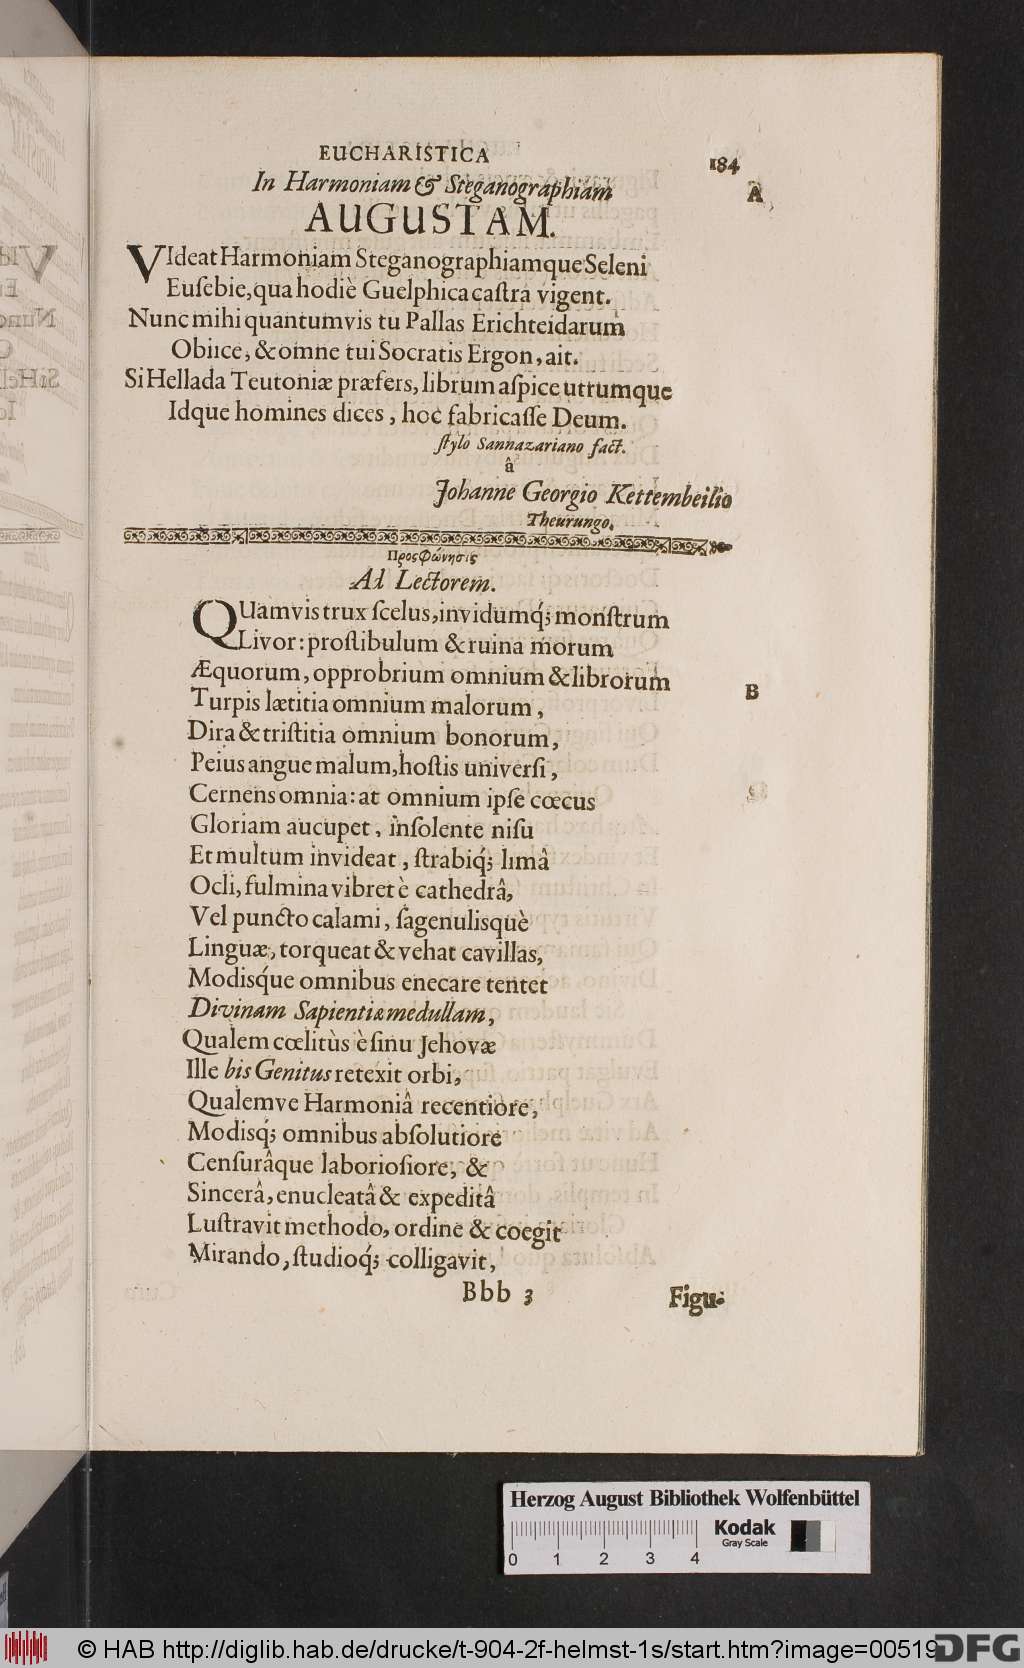 EUCHARISTICA
184
In Harmoniam & Steganographiam
A
AUGUSTAM.
VIdeat Harmoniam Steganographiamque Seleni
Euſebie, qua hodiè Guelphica caſtra vigent.
Nunc mihi quantumvis tu Pallas Erichteidarum
Obiice, & omne tui Socratis Ergon, ait.
Si Hellada Teutoniæ præfers, librum aſpice utrumque
Idque homines dices, hoc fabricaſſe Deum.
ſtylo Sannazariano fact.
â
Johanne Georgio Kettembeilio
Theurungo.
ΠροςΦώνησις
Ad Lectorem.
QUamvis trux ſcelus, invidumq́; monſtrum
Livor: proſtibulum & ruina morum
Æquorum, opprobrium omnium & librorum
B
Turpis lætitia omnium malorum,
Dira & triſtitia omnium bonorum,
Peius angue malum, hoſtis univerſi,
Cernens omnia: at omnium ipſe cœcus
Gloriam aucupet, inſolente niſu
Et multum invideat, ſtrabiq́; limâ
Ocli, fulmina vibret è cathedrâ,
Vel puncto calami, ſagenulisquè
Linguæ, torqueat & vehat cavillas,
Modisq́ue omnibus enecare tentet
Divinam Sapientiæ medullam,
Qualem cœlitùs è ſinu Jehovæ
Ille bis Genitus retexit orbi,
Qualemve Harmoniâ recentiore,
Modisq́; omnibus abſolutiore
Cenſurâque laborioſiore, &
Sincerâ, enucleatâ & expeditâ
Luſtravit methodo, ordine & coegit
Mirando, ſtudioq́; colligavit,
Bbb 3
Figu-
Herzog August Bibliothek Wolfenbüttel
Kodak
Gray Scale
0 1 2 3 4
© HAB http://diglib.hab.de/drucke/t-904-2f-helmst-1s/start.htm?image=00519
DFG